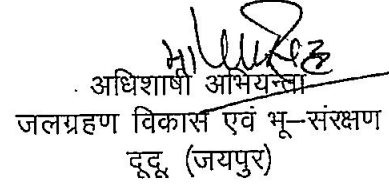 अधिशाषी अभियन्ता
जलग्रहण विकास एवं भू–संरक्षण
दूदू, (जयपुर)